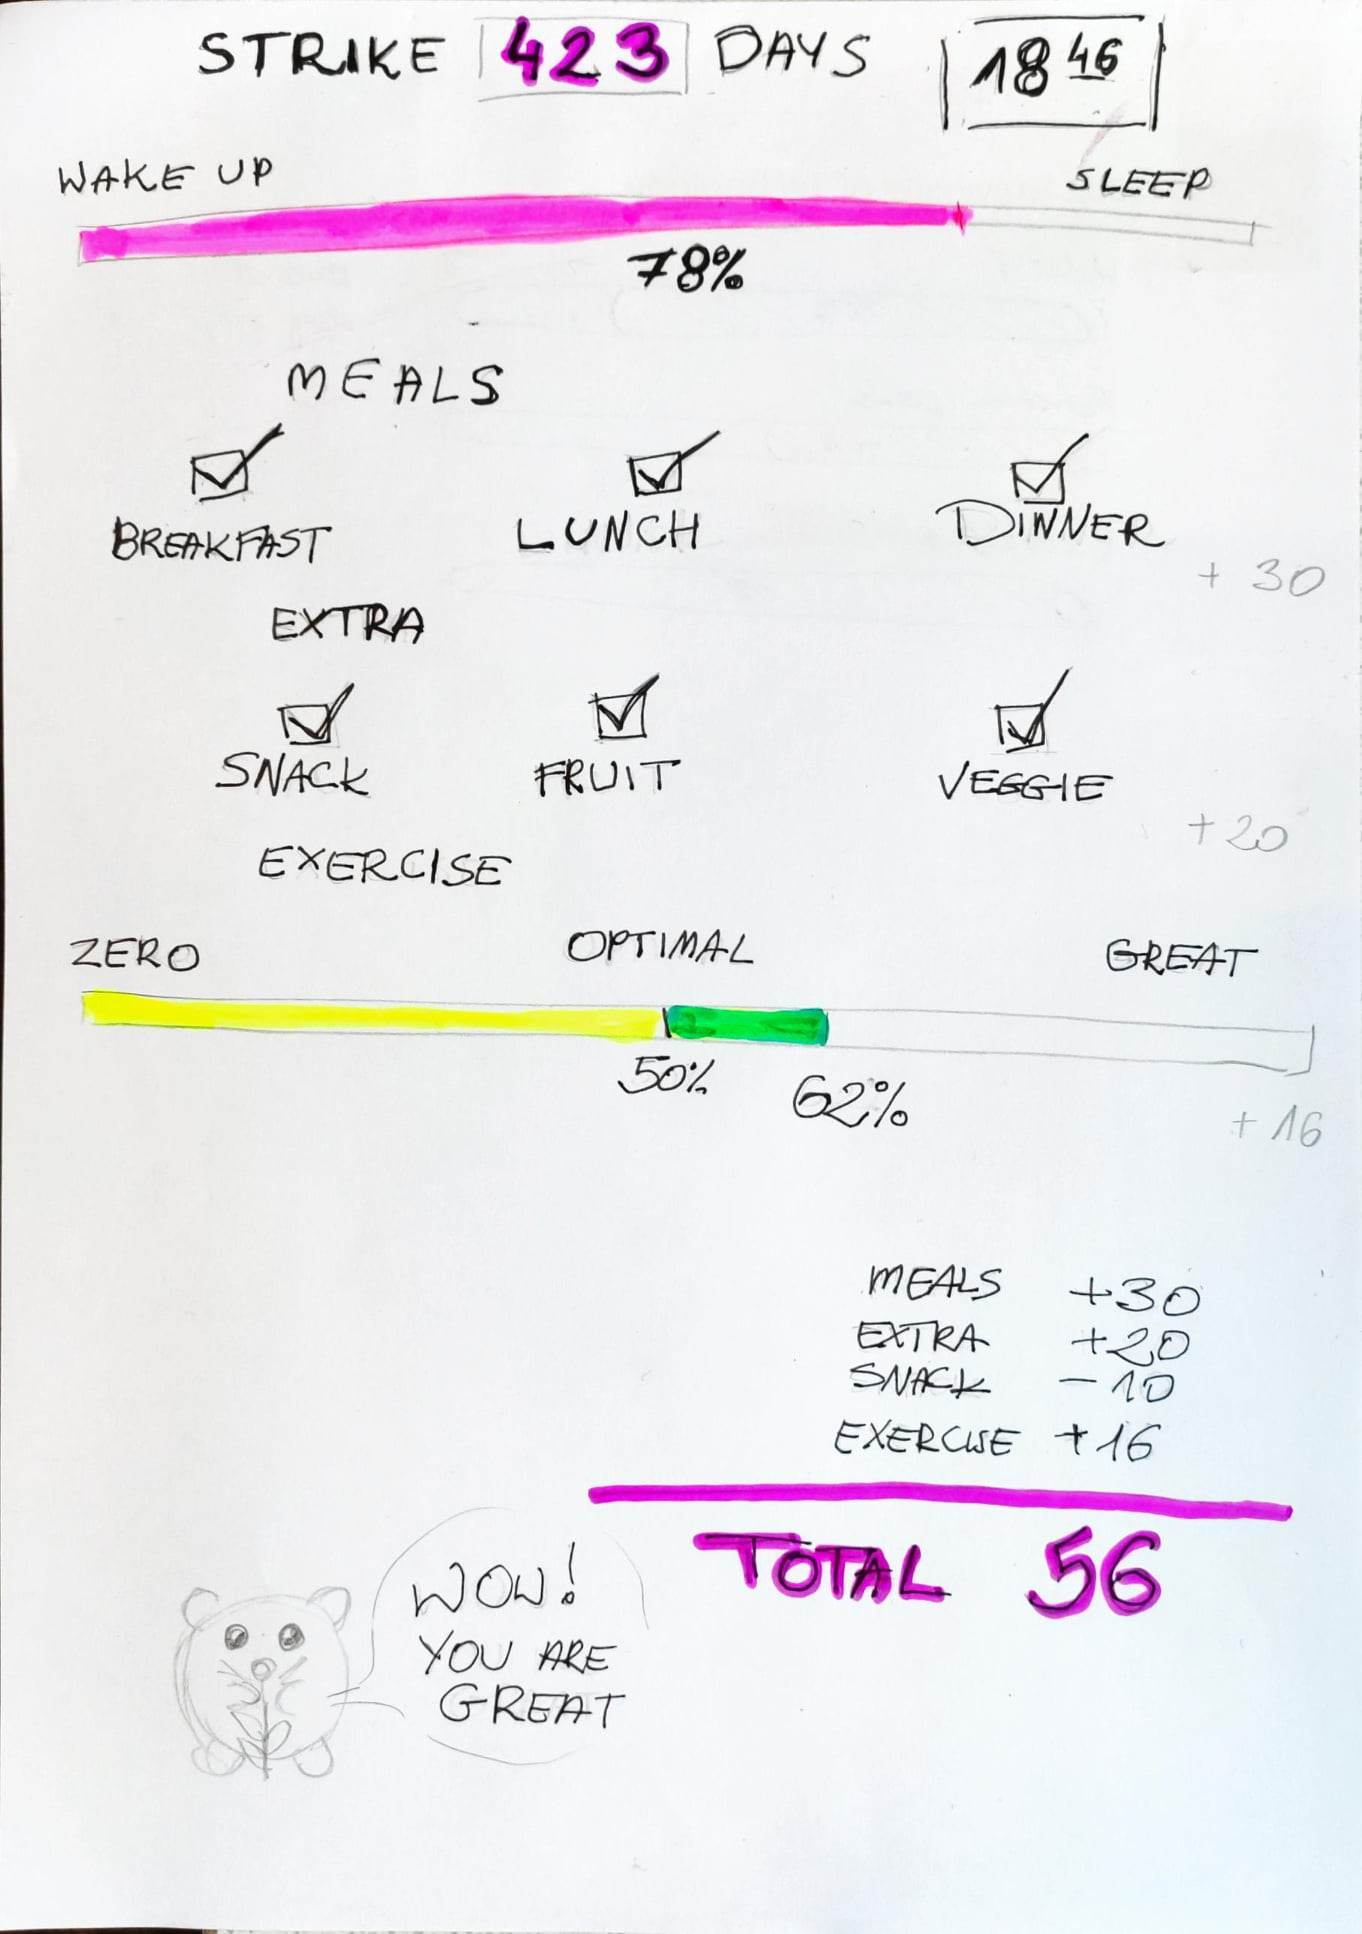 STRIKE 423 DAYS 18 46
WAKE UP SLEEP
78%
MEALS
BREAKFAST LUNCH DINNER
+ 30
EXTRA
SNACK FRUIT VEGGIE
+20
EXERCISE
ZERO OPTIMAL GREAT
50% 62%
+ 16
MEALS +30
EXTRA +20
SNACK - 10
EXERCISE +16
TOTAL 56
WOW!
YOU ARE
GREAT